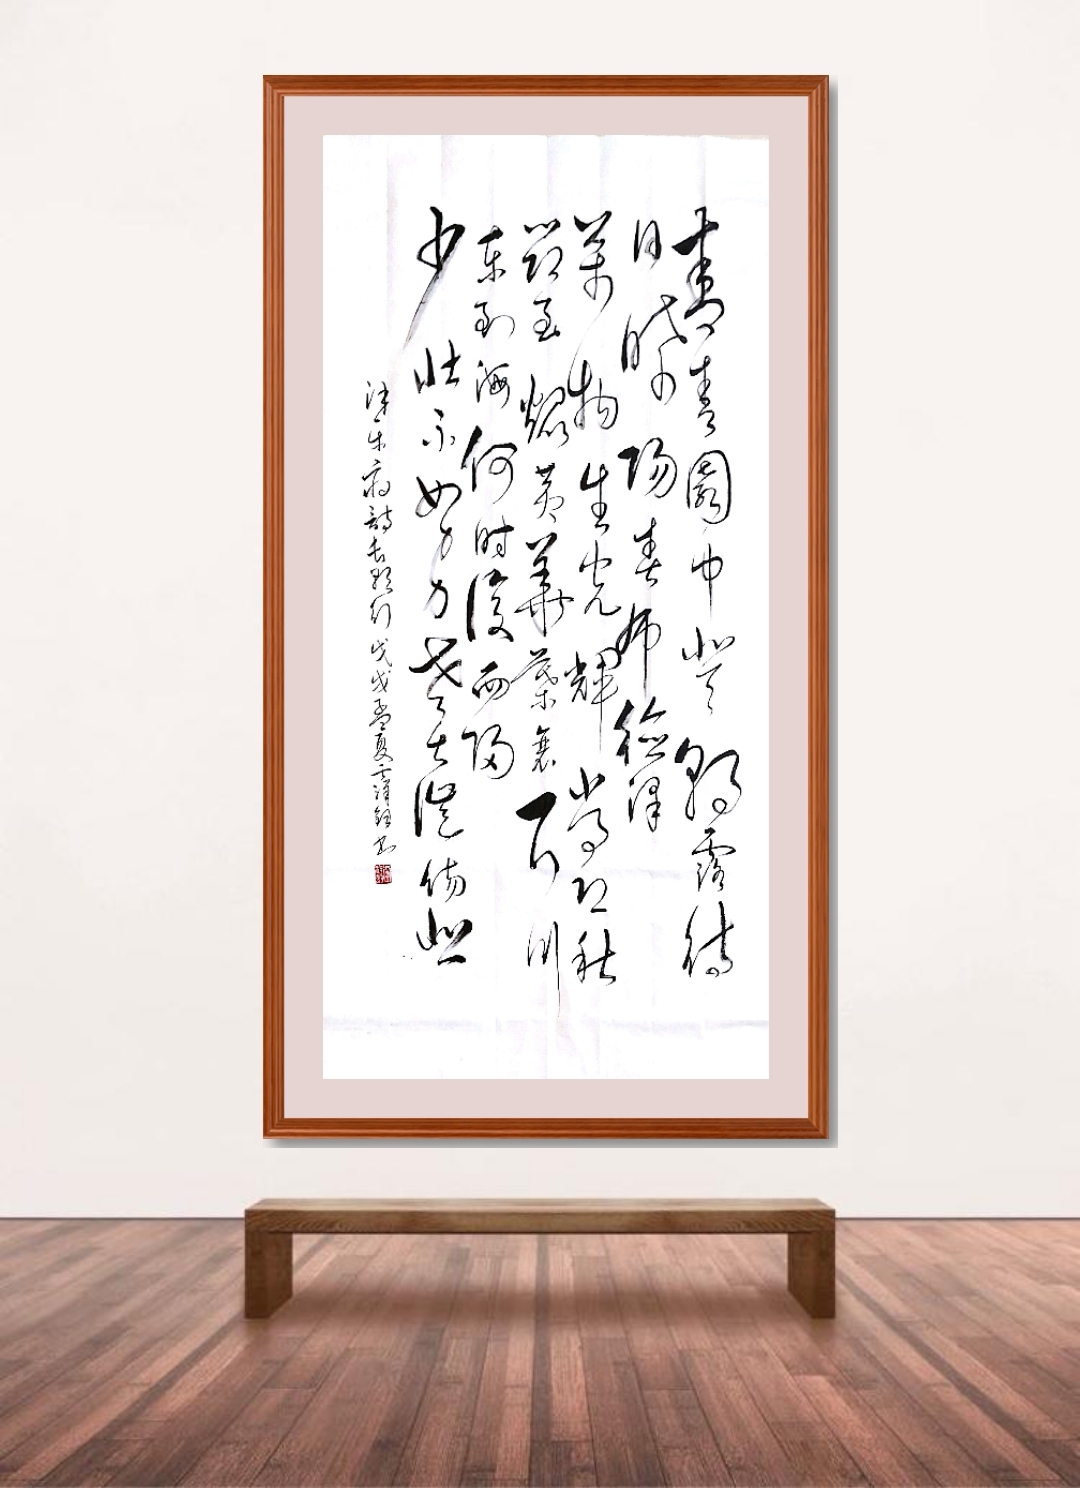 青青園中葵朝露待
日晞陽春布德澤
萬物生光輝常恐秋
節至焜黃華葉衰百川
東到海何時復西歸
少壯不努力老大徒傷悲
漢樂府詩長歌行戊戌孟夏書